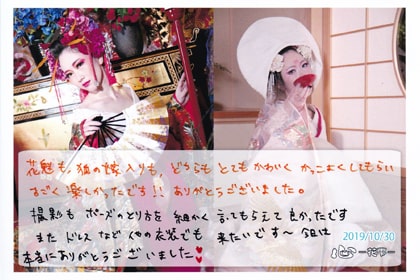 花魁も、狐の嫁入りも、どちらも とてもかわいく かっこよくしてもらい
すごく楽しかったです!! ありがとうございました。
撮影も ポーズのとり方を 細かく 言ってもらえて 良かったです
また ドレス など 他の衣装でも 来たいです〜 今日は
本当にありがとうございました♥
2019/10/30
心-花雫-